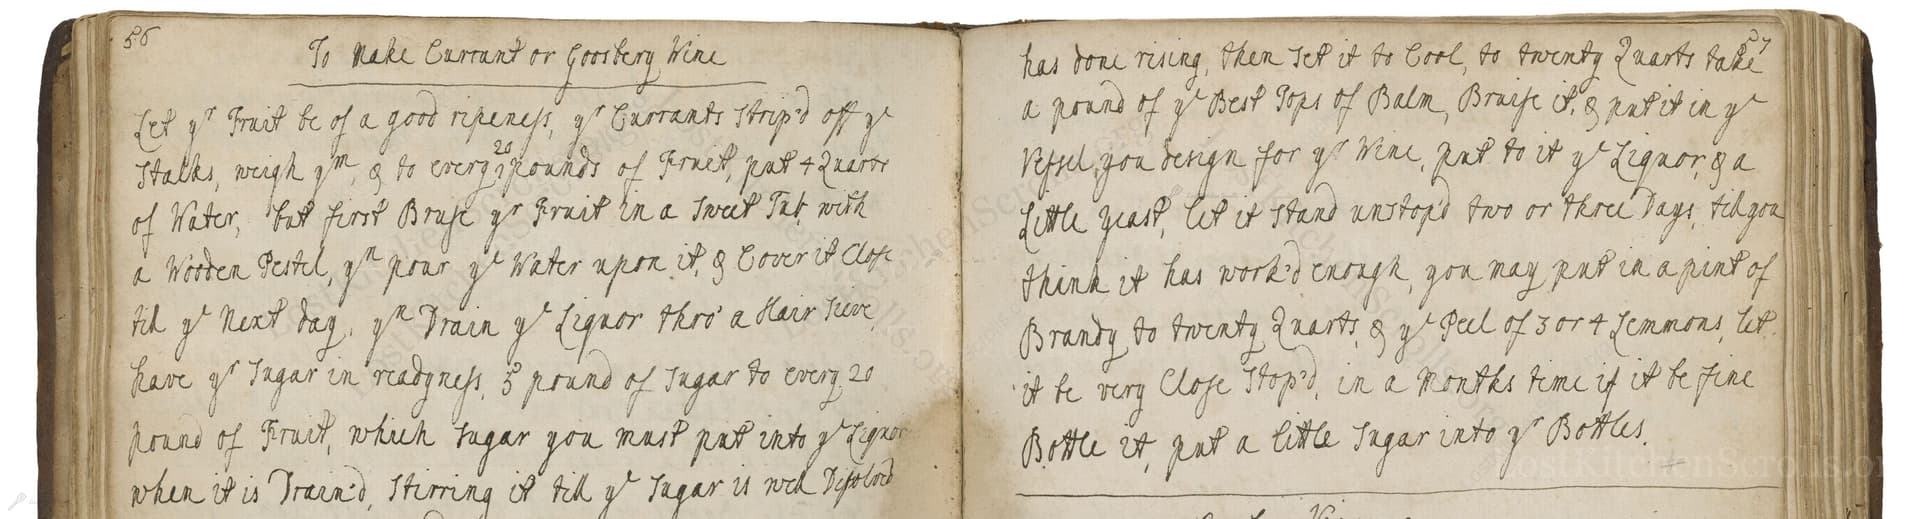 56
To Make Currant or Goosbery Wine
Let yr Fruit be of a good ripeness, yr Currants Strip'd off ye
Stalks, weigh ym, & to every 20 pounds of Fruit, put 4 Quarts
of Water, but first Bruise yr Fruit in a Sweet Tub, with
a Wooden Pestel, yn pour ye Water upon it, & Cover it Close
till ye Next day, yn Drain ye Liquor thro' a Hair Sieve,
have yr Sugar in readyness, 5 pound of Sugar to every 20
pound of Fruit, which Sugar you must put into ye Liquor
when it is Drain'd, Stirring it till ye Sugar is well Dissolved
57
has done rising, then Set it to Cool, to twenty Quarts take
a pound of ye Best Tops of Balm, Bruise it, & put it in ye
Vessel, you design for yr Wine, put to it ye Liquor, & a
Little yeast, let it Stand unstop'd two or three Days, till you
think it has work'd enough, you may put in a pint of
Brandy to twenty Quarts, & ye Peel of 3 or 4 Lemmons, let
it be very Close Stop'd, in a Months time if it be fine
Bottle it, put a little Sugar into yr Bottles.
LostKitchenScrolls.or